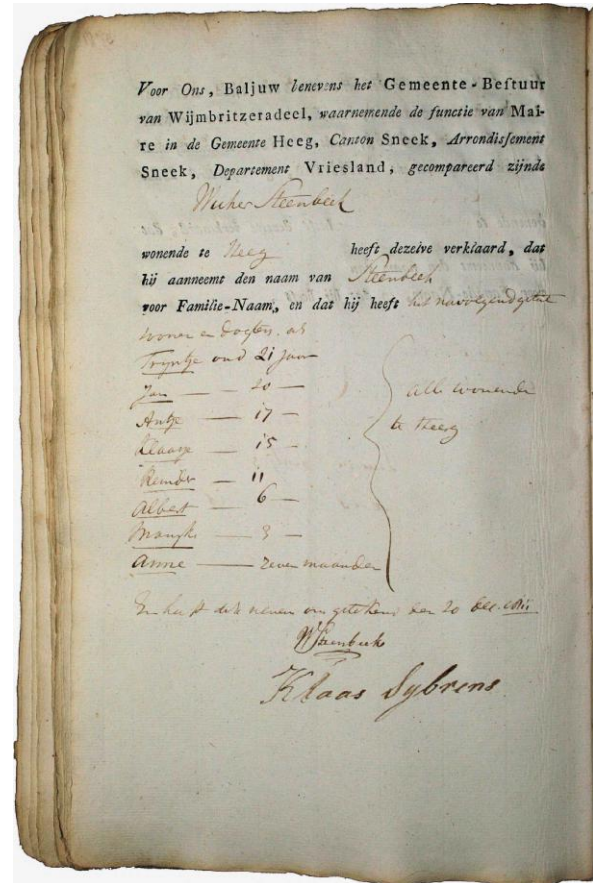 Voor Ons, Baljuw benevens het Gemeente-Bestuur
van Wijmbritzeradeel, waarnemende de functie van Mai-
re in de Gemeente Heeg, Canton Sneek, Arrondissement
Sneek, Departement Vriesland, gecompareerd zijnde
Wicher Steenbeek
wonende te Heeg heeft dezelve verklaard, dat
hij aanneemt den naam van Steenbeek
voor Familie-Naam, en dat hij heeft het navolgend getal
zonen en dogters. als
Tryntje oud 21 jaar
Jan — 20 —
Antje — 17 —
Klaasje — 15 —
Reinder — 11
Albert — 6 —
— 3 —
Anne — zeven maanden
alle wonende
te Heeg
En heeft dit neven ons getekend den 20 Dec. 1811
WSteenbeek
Klaas Sybrens